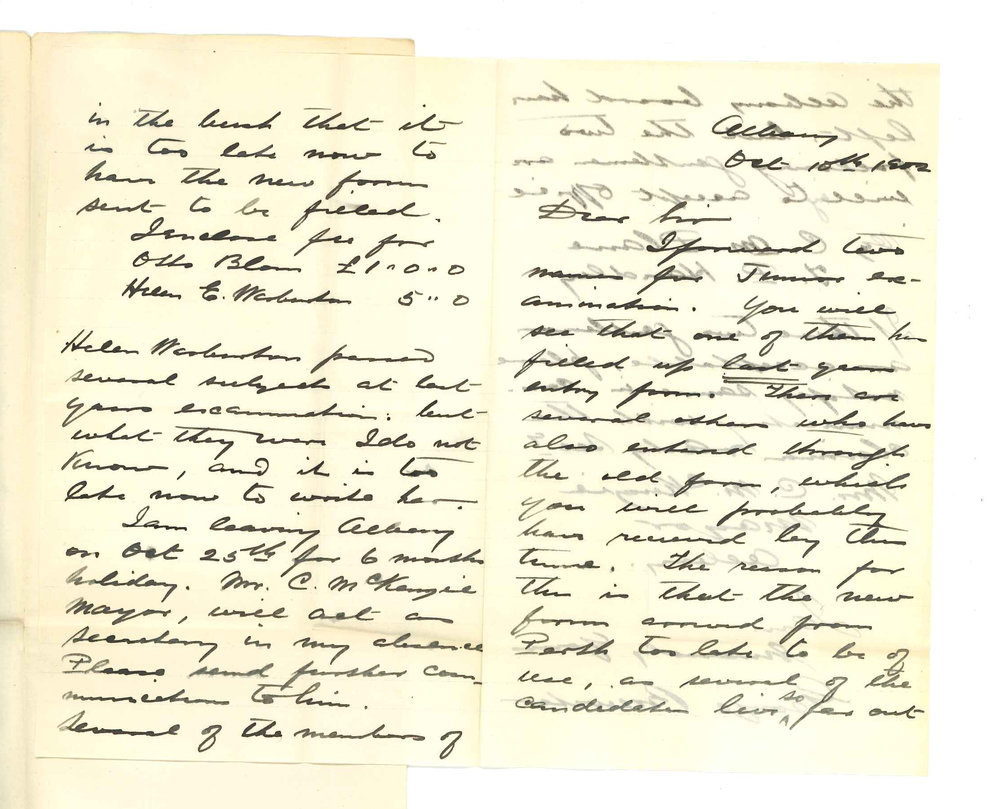 Albany
Oct 10th 1902
Dear Sir
I forward two
names for Junior ex-
amination. You will
see that one of them has
filled up last years
entry form. There are
several others who have
also entered through
the old form, which
you will probably
have received by this
time. The reason for
this is that the new
forms arrived from
Perth too late to be of
use, as several of the
candidates live so far out
in the bush that it
is too late now to
have the new forms
sent to be filled.
I enclose fee for
Otto £1"0"0
Helen E. Warburton 5"0
Helen Warburton passed
several subjects at last
years examination. but
what they were I do not
know, and it is too
late now to write her.
I am leaving Albany
on Oct 25th for 6 months
holiday. Mr. C. McKenzie
Mayor, will act as
secretary in my absence
Please send further com-
munications to him.
Several of the members of